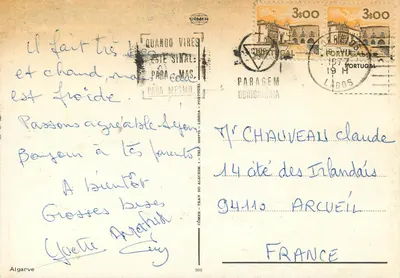 Il fait très
et chaud, mais
est froide.
Passons agréable séjour
Bonjour à tes parents
A bientôt
Grosses bises
Yvette
Algarve
QUANDO VIRES
ESTE SINAL
PARA MAS
PARA MESMO
PARAGEM
OBRIGATÓRIA
3$00
PORTUGAL
3$00
PORTUGAL
1977
19 H
LAGOS
Mr CHAUVEAU claude
14 cité des Irlandais
94110 ARCUEIL
FRANCE